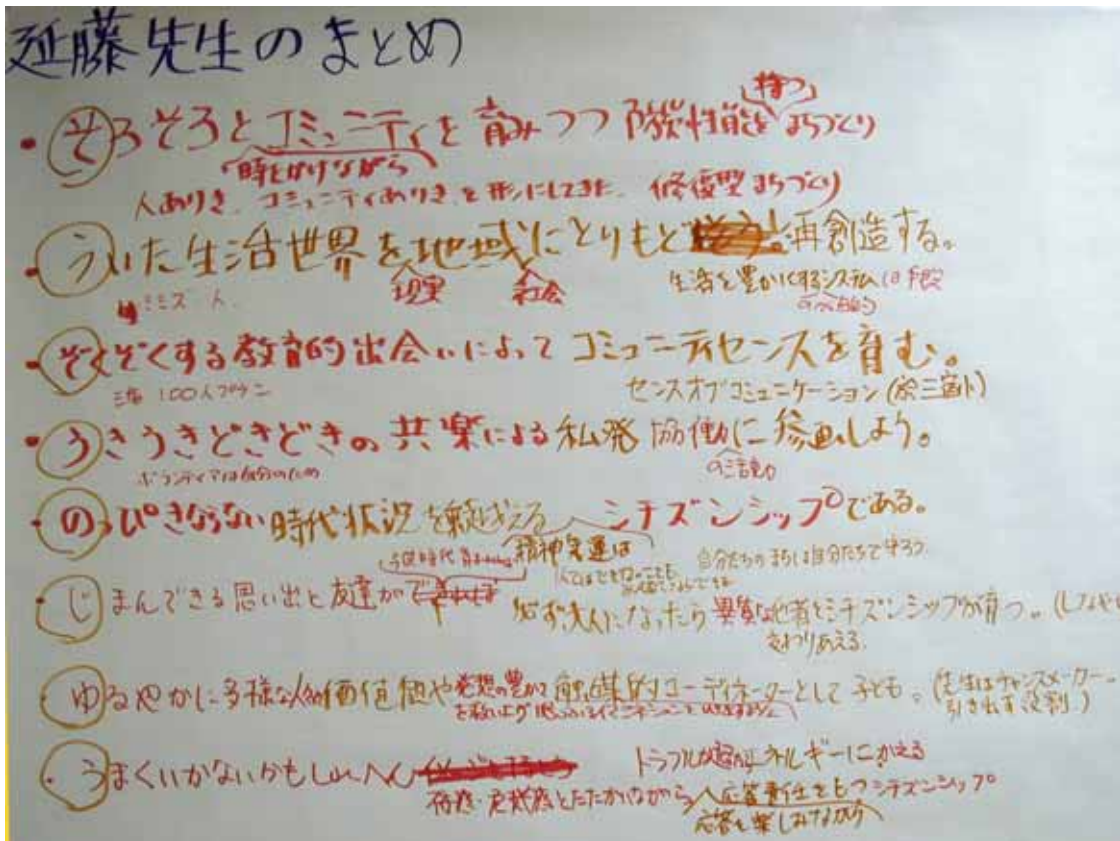 延藤先生のまとめ
・そろそろとコミュニティを育みつつ防災性能を持つまちづくり
時をかけながら
人ありき、コミュニティありき、を形にしてきた、修復型まちづくり
・ういた生活世界を地域にとりもどし再創造する。
現実 社会 生活を豊かにするシステムは手段
・ぞくぞくする教育的出会いによってコミュニティセンスを育む。
100人プラン センスオブコミュニケーション
・うきうきどきどきの共楽による私発協働に参画しよう。
ボランティアは自分のため の活動
・のっぴきならない時代状況を乗り越えるシチズンシップである。
精神は 自分たちのまちは自分たちで守ろう
・じまんできる思い出と友達ができれば必ず大人になったら異質な他者とシチズンシップが育つ。
交わりあえる
・ゆるやかに多様な人的価値や発想の豊かさ触媒的コーディネーターとして子ども。(先生はチャンスメーカー
引き出す役割)
・うまくいかないかもしれへん トラブルをエネルギーにかえる
とたたかいながら 応答責任をもつシチズンシップ
応答を楽しみながら